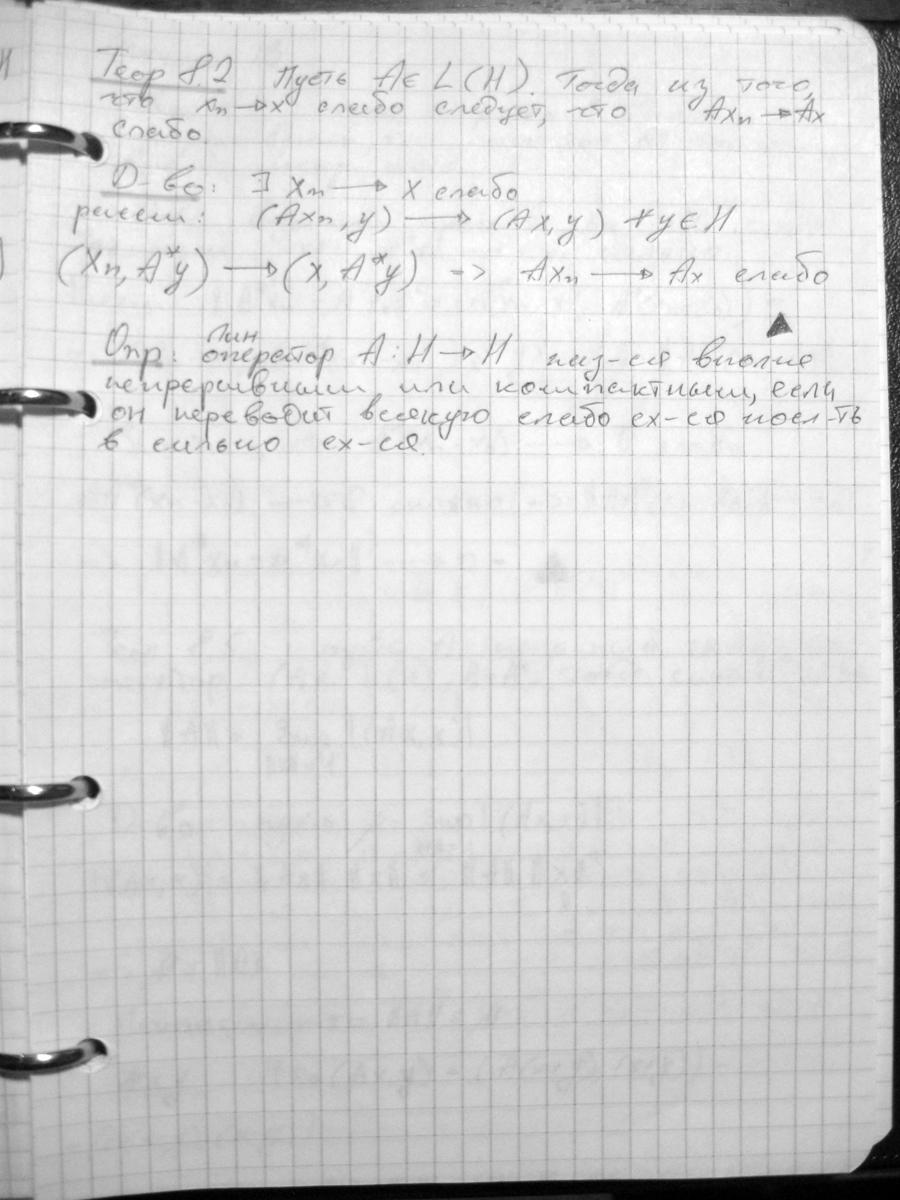 Теор 8.2 Пусть A ∈ L(H). Тогда из того,
что xₙ → x слабо следует, что Axₙ → Ax
слабо.
Д-во: ∃ xₙ → x слабо
рассм.: (Axₙ, y) → (Ax, y) ∀y ∈ H
(xₙ, A*y) → (x, A*y) -> Axₙ → Ax слабо
▲
лин
Опр: оператор A: H → H наз-ся вполне
непрерывным или компактным, если
он переводит всякую слабо сх-ся посл-ть
в сильно сх-ся.